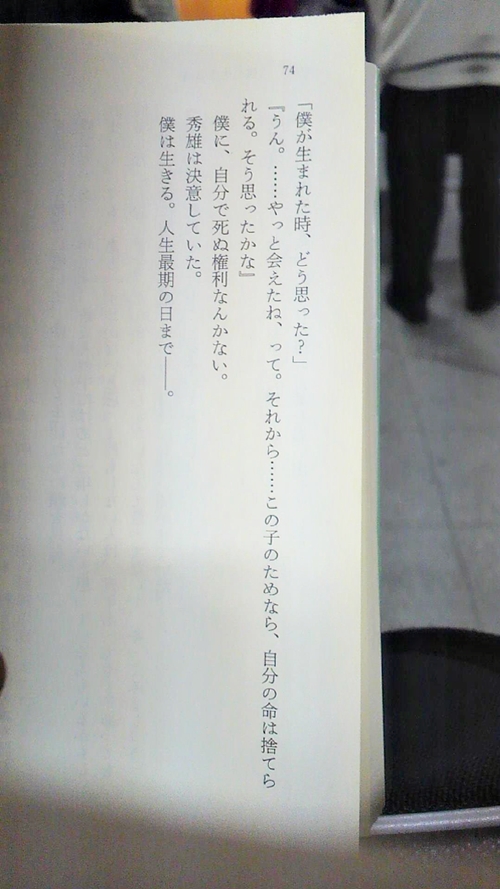 74
「僕が生まれた時、どう思った?」
『うん。……やっと会えたね、って。それから……この子のためなら、自分の命は捨てら
れる。そう思ったかな』
僕に、自分で死ぬ権利なんかない。
秀雄は決意していた。
僕は生きる。人生最期の日まで――。